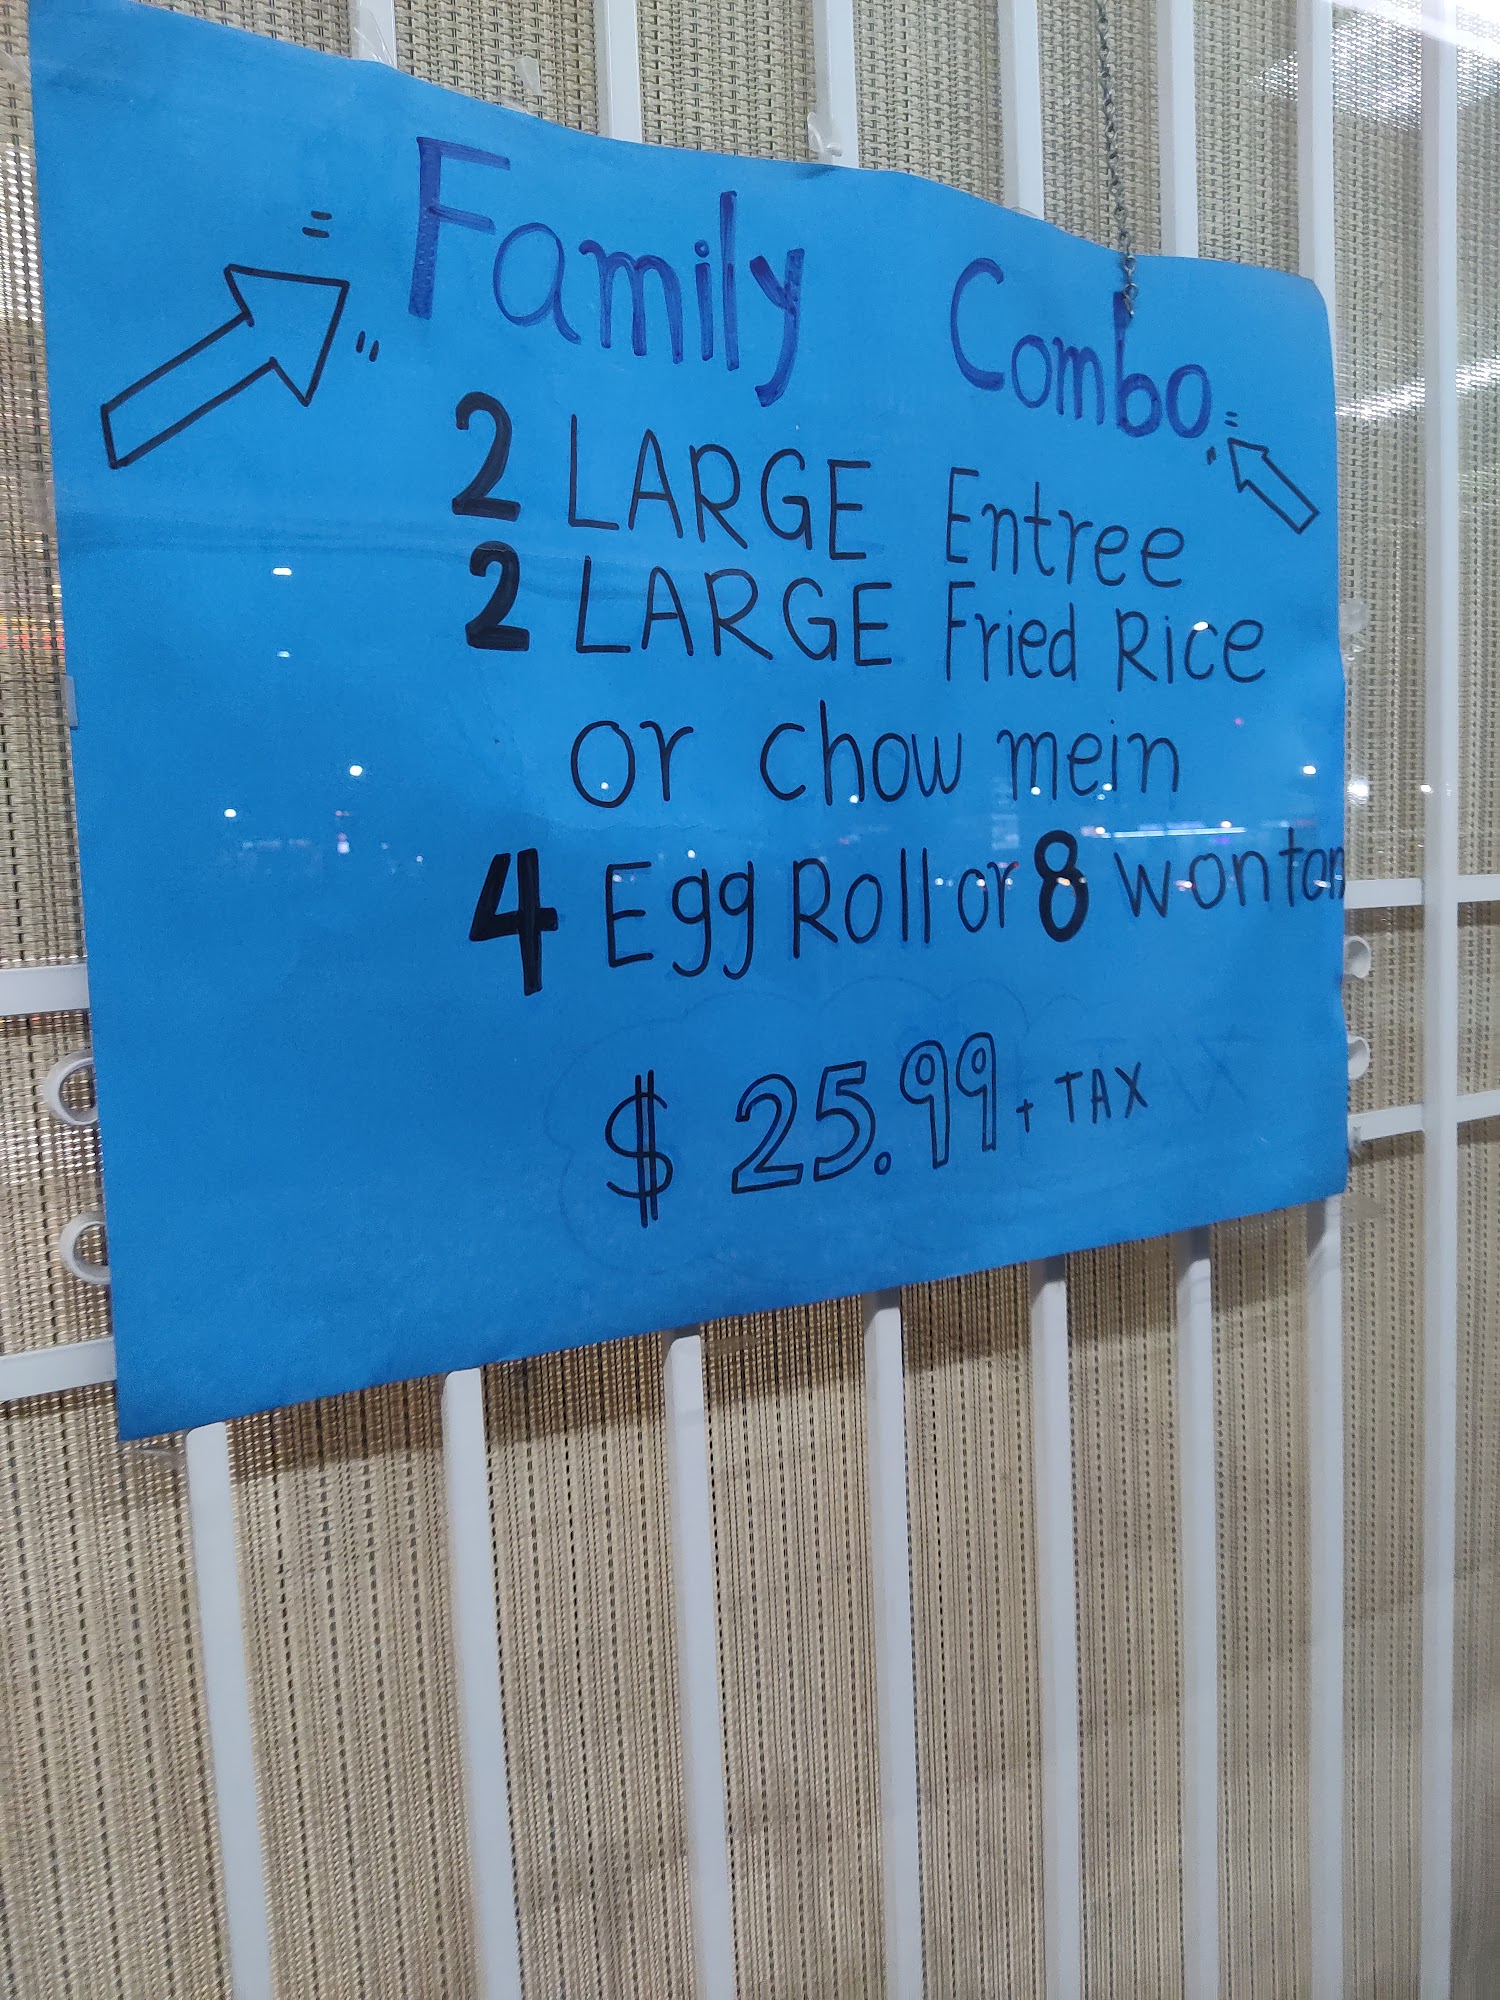 Family Combo
2 LARGE Entree
2 LARGE Fried Rice
or chow mein
4 Egg Roll or 8 wonton
$ 25.99 + TAX